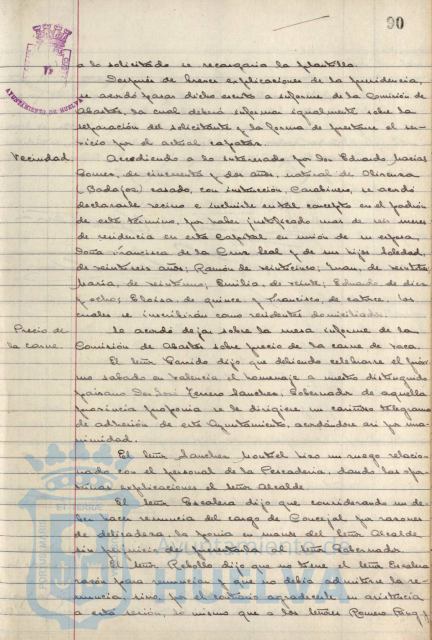 90
AYUNTAMIENTO DE HUELVA
a lo solicitado se recargaria la plantilla.
Después de breves explicaciones de la presidencia,
se acordó pasar dicho escrito a informe de la Comisión de
Abastos, la cual deberá informar igualmente sobre la
separación del solicitante y la forma de prestarse el ser-
vicio por el actual capataz.
Vecindad.
Accediendo a lo interesado por Don Eduardo Macias
Gomez, de cincuenta y dos años, natural de Olivenza
(Badajoz) casado, con instrucción, Carabinero, se acordó
declararle vecino e incluirle en tal concepto en el padrón
de este término, por haber justificado mas de seis meses
de residencia en esta Capital en unión de su esposa,
Doña Francisca de la Cruz Leal y de sus hijos Soledad,
de veintiseis años; Ramón de veinticinco; Juan, de veintitres
Maria, de veintiuno; Emilia, de veinte; Eduardo de diez
y ocho; Eloisa, de quince y Francisco, de catorce, los
cuales se inscribirán como residentes domiciliados.
Precio de
la carne.
Se acordó dejar sobre la mesa informe de la
Comisión de Abastos sobre precio de la carne de vaca.
El Señor Garrido dijo que debiendo celebrarse el próxi-
mo sabado en Valencia el homenaje a nuestro distinguido
paisano Don José Terrero Sanchez, Gobernador de aquella
provincia proponia se le dirigiere un cariñoso telegrama
de adhesión de este Ayuntamiento, acordándose asi por una-
nimidad.
El Señor Sanchez Montiel hizo un ruego relacio-
nado con el personal de la Pescaderia, dando las opor-
tunas explicaciones el Señor Alcalde.
El Señor Escalera dijo que considerando un de-
ber hacer renuncia del cargo de Concejal por razones
de delicadeza, la ponia en manos del Señor Alcalde
sin perjuicio de presentarla al Señor Gobernador.
El Señor Rebollo dijo que no tiene el Señor Escalera
razón para renunciar y que no debia admitirse la re-
nuncia, sino, por el contrario agradecerle su asistencia
a esta sesión, lo mismo que a los Señores Romero